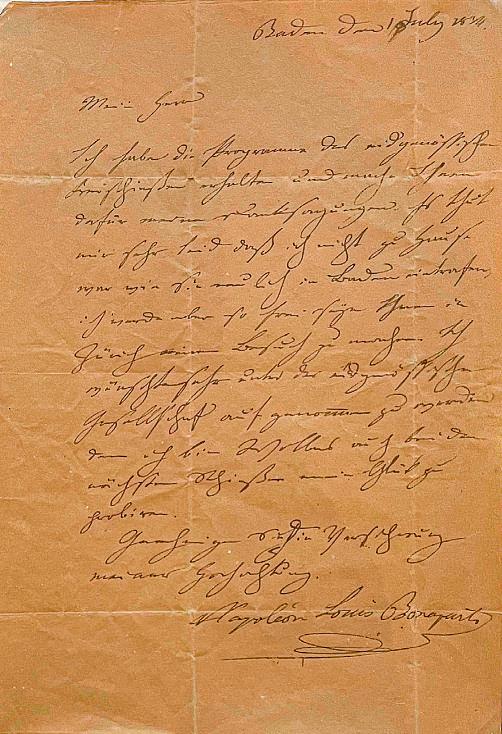 Baden den 1 July 1834.
Mein Herr
Ich habe die Programme des eidgenössischen
Freischießen erhalten und mache Ihnen
dafür meine Danksagungen. Es thut
mir sehr leid daß ich nicht zu Hause
war wie Sie neulich in Baden eintrafen
ich werde aber so frei seyn Ihnen in
Zürich einen Besuch zu machen. Ich
wünschte sehr unter der eidgenössischen
Gesellschaft aufgenommen zu werden
denn ich bin Willens auch bei dem
nächsten Schießen mein Glük zu
probiren.
Genehmigen Sie die Versicherung
meiner Hochachtung.
Napoléon Louis Bonaparte